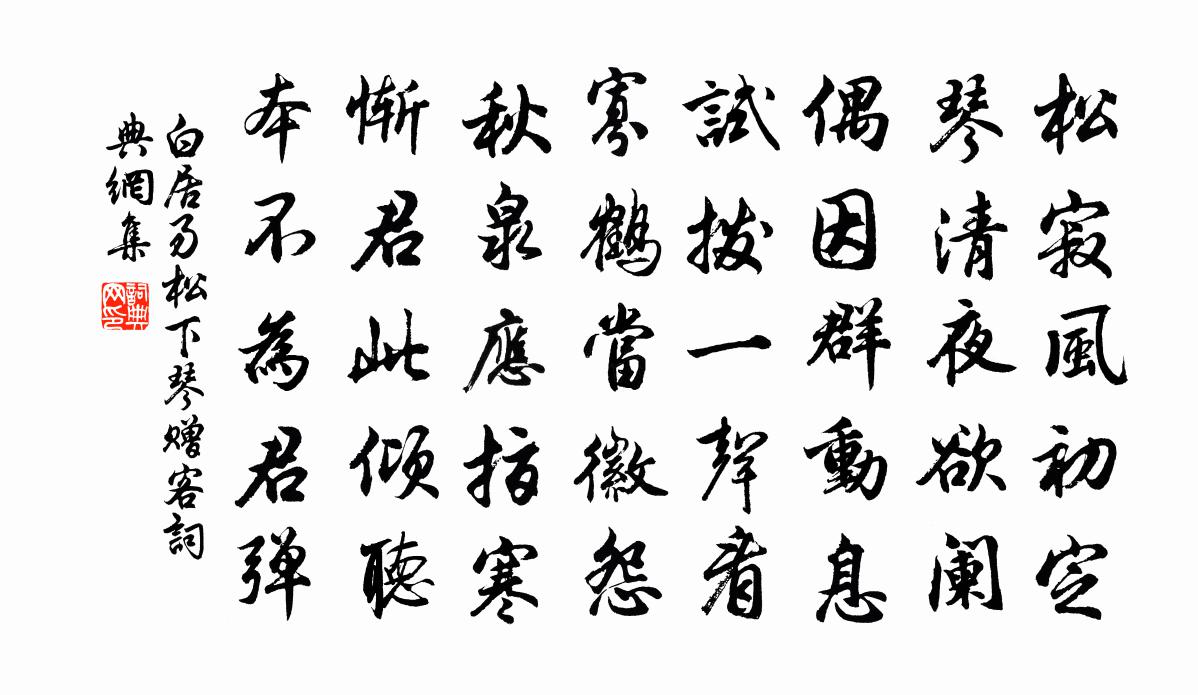 松寂風初定
琴清夜欲闌
偶因群動息
試撥一聲看
寡鶴當徽怨
秋泉應指寒
慚君此傾聽
本不為君彈
白居易松下琴贈客詞
典網集
詞典
网印